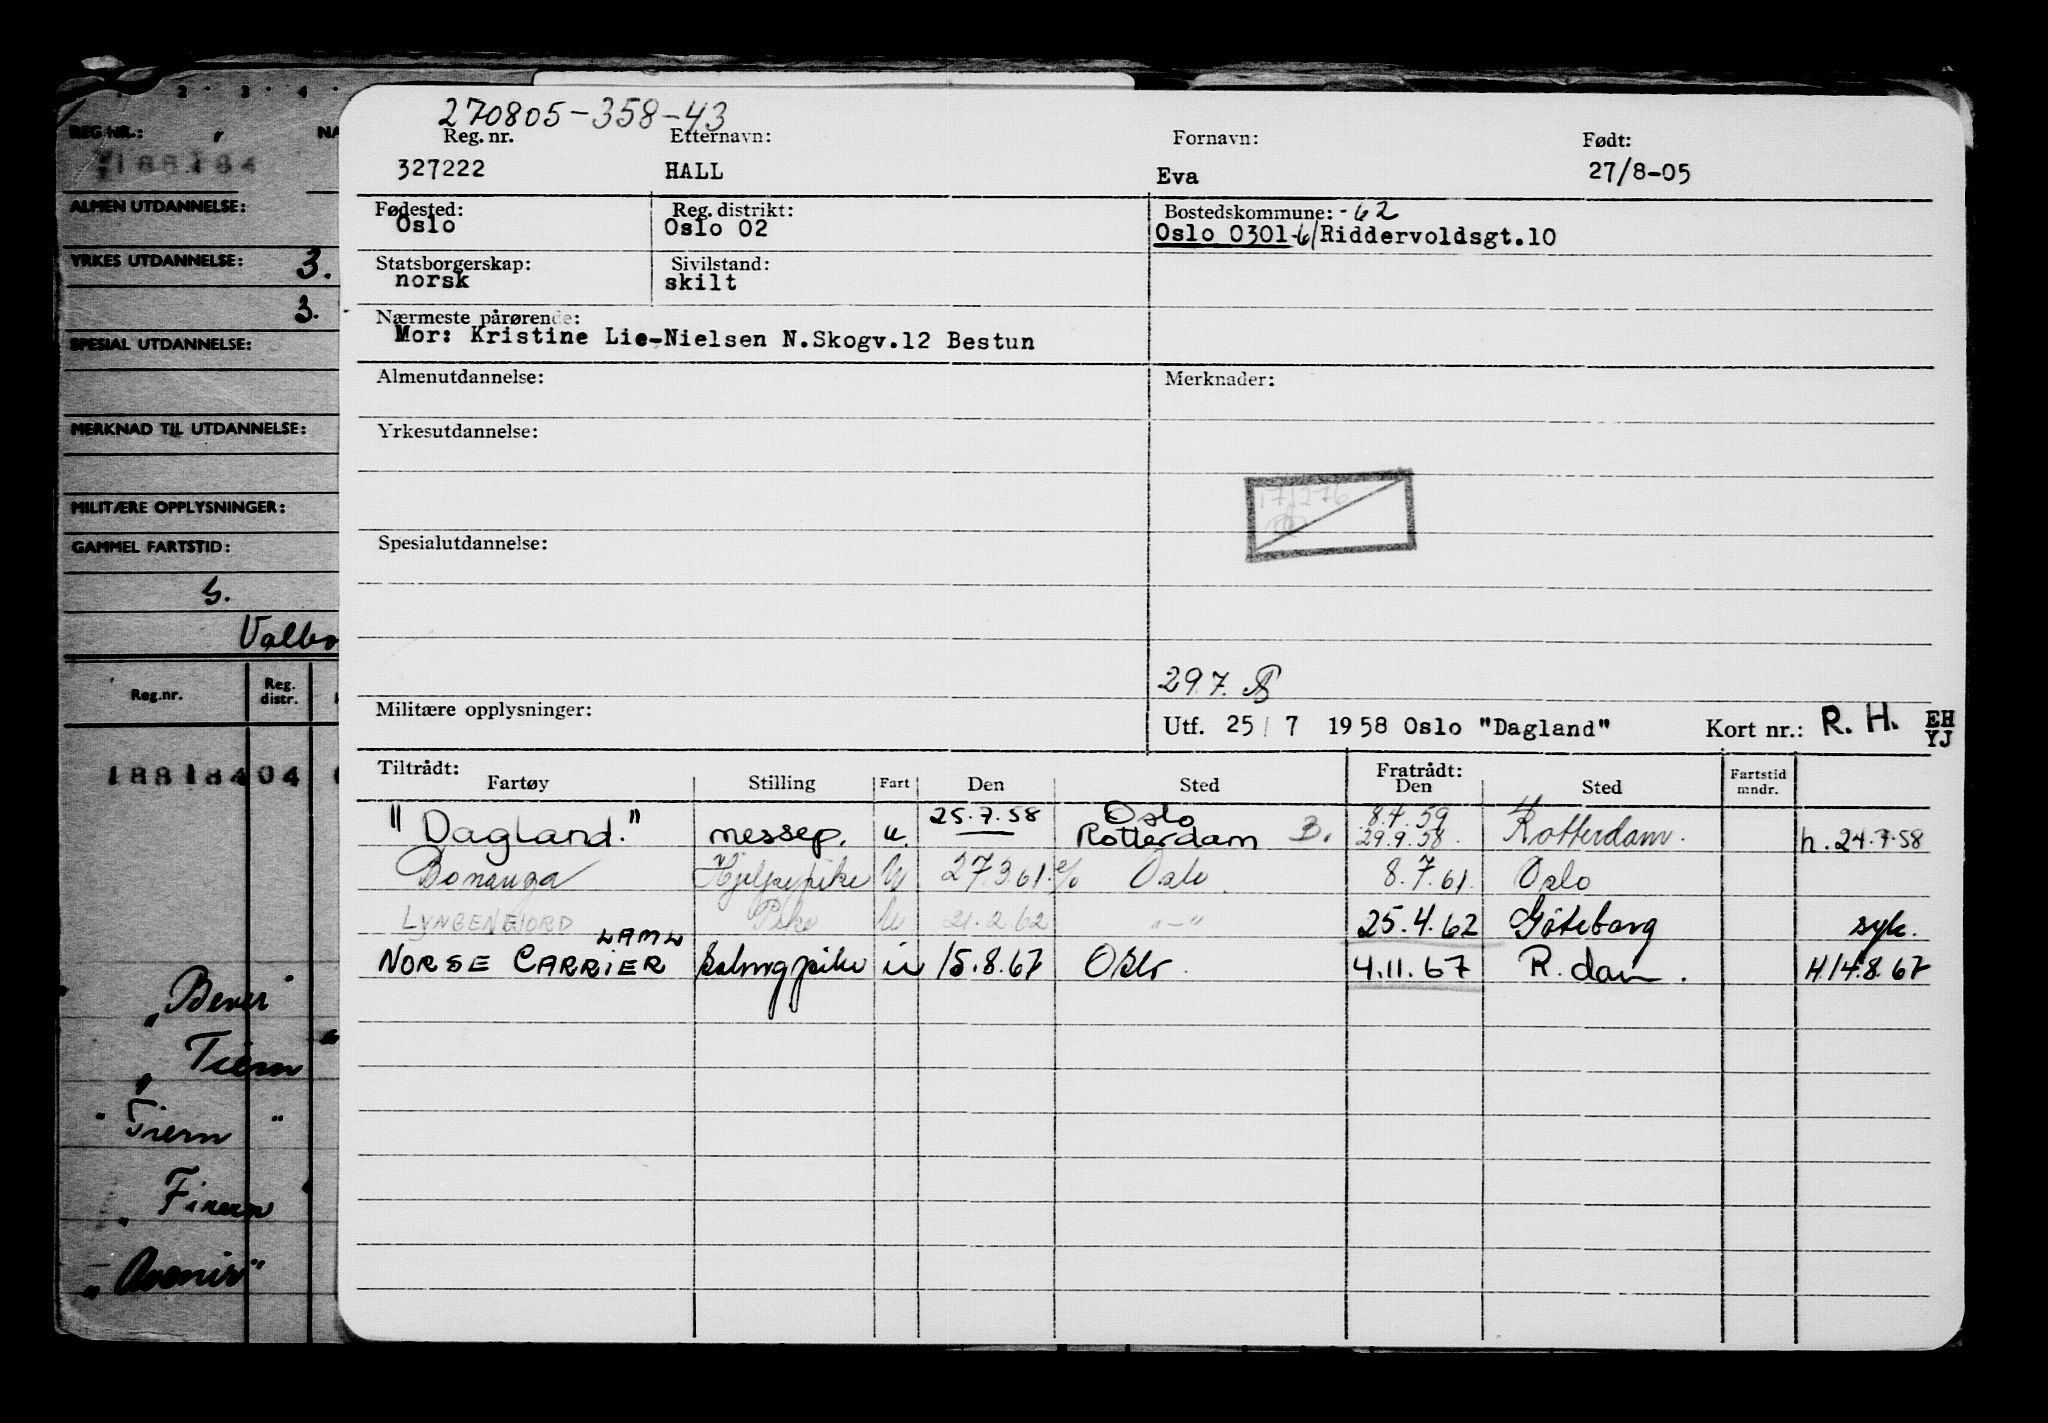 270805-358-43
Reg. nr. Etternavn: Fornavn: Født:
327222 HALL Eva 27/8-05
Fødested: Reg. distrikt: Bostedskommune: -62
Oslo Oslo 02 Oslo 0301-6/Riddervoldsgt.10
Statsborgerskap: Sivilstand:
norsk skilt
Nærmeste pårørende:
Mor: Kristine Lie-Nielsen N.Skogv.12 Bestun
Almenutdannelse: Merknader:
Yrkesutdannelse:
Spesialutdannelse:
297.
Militære opplysninger: Utf. 25/7 1958 Oslo "Dagland" Kort nr.: R. H. EH
YJ
Tiltrådt: Fratrådt:
Fartøy Stilling Fart Den Sted Den Sted Fartstid
mndr.
25.7.58 Oslo 8.7.59
"Dagland." messep. u. Rotterdam 3. 29.9.58. Rotterdam. h. 24.7.58
Bonanza Hjelpepike U 27.3.61 Oslo 8.7.61 Oslo
LYNGENFJORD Pike U 21.2.62 -"- 25.4.62 Göteborg syk.
LAMW
NORSE CARRIER salongpike u 15.8.67 Oslo. 4.11.67 R.dam. H.14.8.67
1 2 3 4
REG.NR.: NA
188184
ALMEN UTDANNELSE:
YRKES UTDANNELSE: 3.
3.
SPESIAL UTDANNELSE:
MERKNAD TIL UTDANNELSE:
MILITÆRE OPPLYSNINGER:
GAMMEL FARTSTID:
Valbo
Reg.nr. Reg.
distr.
188184 04
"Bever"
"Tiern"
"Tiern"
"Avenir"